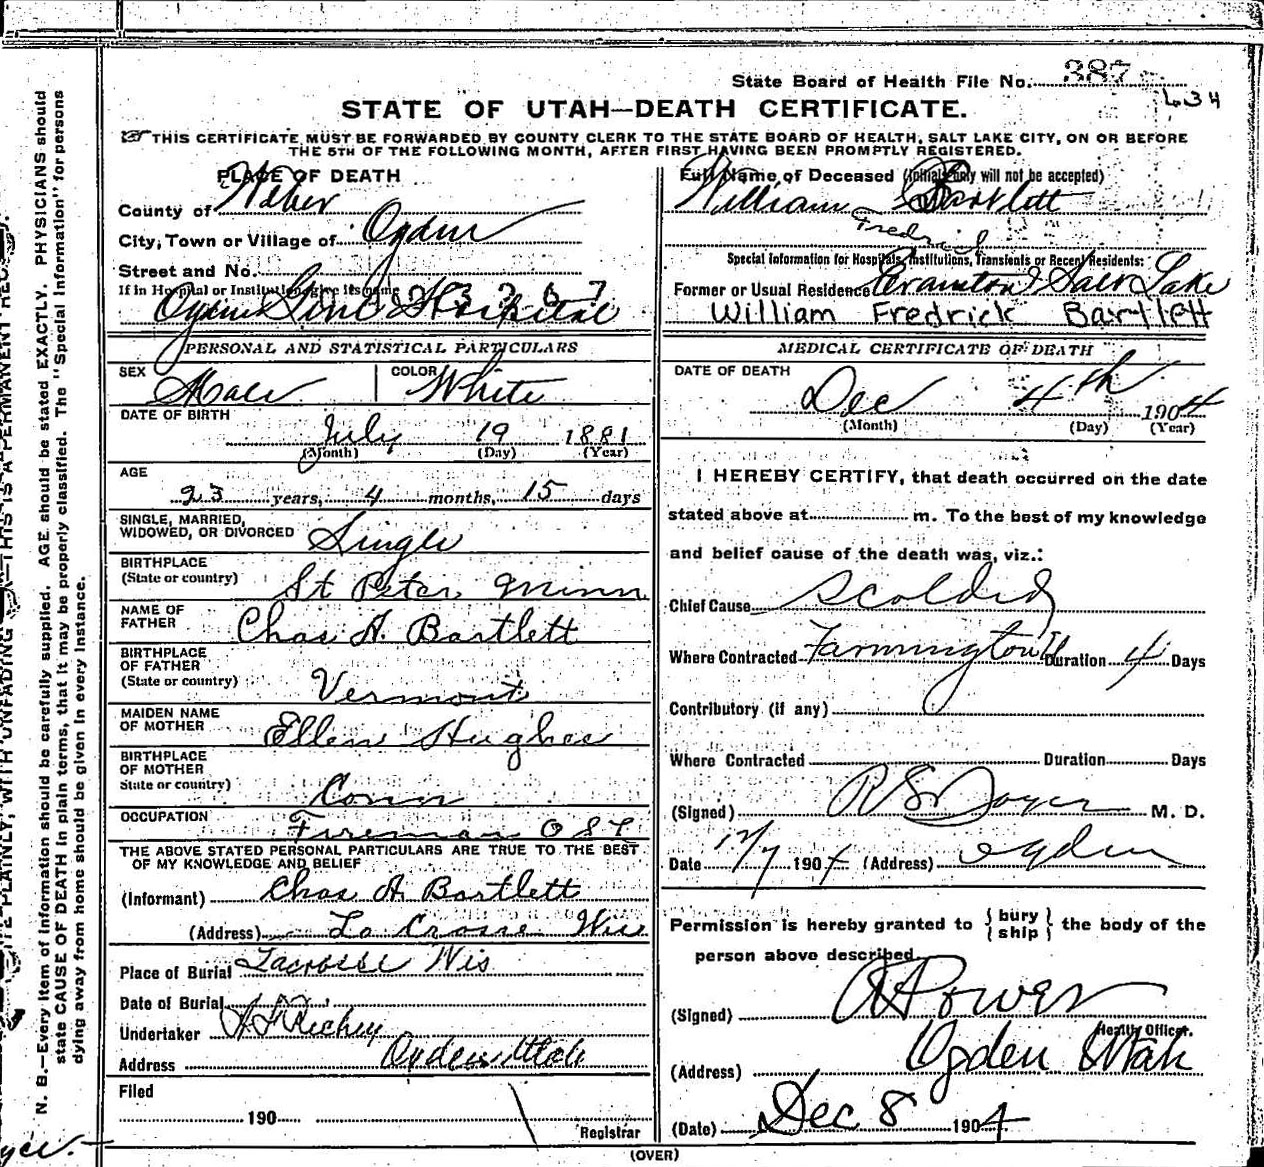 State Board of Health File No. 387
634
STATE OF UTAH—DEATH CERTIFICATE.
THIS CERTIFICATE MUST BE FORWARDED BY COUNTY CLERK TO THE STATE BOARD OF HEALTH, SALT LAKE CITY, ON OR BEFORE
THE 5TH OF THE FOLLOWING MONTH, AFTER FIRST HAVING BEEN PROMPTLY REGISTERED.
N. B.—Every item of information should be carefully supplied. AGE should be stated EXACTLY. PHYSICIANS should
state CAUSE OF DEATH in plain terms, that it may be properly classified. The "Special Information" for persons
dying away from home should be given in every instance.
PLACE OF DEATH
County of Weber
City, Town or Village of Ogden
Street and No.
If in Hospital or Institution give its name
Ogden Genl Hospital
PERSONAL AND STATISTICAL PARTICULARS
SEX Male COLOR White
DATE OF BIRTH
July 19 1881
(Month) (Day) (Year)
AGE
23 years, 4 months, 15 days
SINGLE, MARRIED,
WIDOWED, OR DIVORCED Single
BIRTHPLACE
(State or country) St Peter Minn
NAME OF
FATHER Chas A. Bartlett
BIRTHPLACE
OF FATHER
(State or country) Vermont
MAIDEN NAME
OF MOTHER Ellen Hughes
BIRTHPLACE
OF MOTHER
State or country) Conn
OCCUPATION Fireman O S L
THE ABOVE STATED PERSONAL PARTICULARS ARE TRUE TO THE BEST
OF MY KNOWLEDGE AND BELIEF
(Informant) Chas A. Bartlett
(Address) La Crosse Wis
Place of Burial Lacrosse Wis
Date of Burial
Undertaker Richey
Address Ogden Utah
Filed
190
Registrar
Full Name of Deceased (Initials only will not be accepted)
William Bartlett
Fredrick
Special Information for Hospitals, Institutions, Transients or Recent Residents:
Former or Usual Residence Salt Lake
William Fredrick Bartlett
MEDICAL CERTIFICATE OF DEATH
DATE OF DEATH
Dec 4th 1904
(Month) (Day) (Year)
I HEREBY CERTIFY, that death occurred on the date
stated above at m. To the best of my knowledge
and belief cause of the death was, viz.:
Chief Cause Scolded
Where Contracted Farmington Duration 4 Days
Contributory (if any)
Where Contracted Duration Days
(Signed) M. D.
Date 12/7 1904 (Address) Ogden
Permission is hereby granted to { bury ship } the body of the
person above described.
(Signed) Power
Health Officer.
(Address) Ogden Utah
(Date) Dec 8 1904
(OVER)